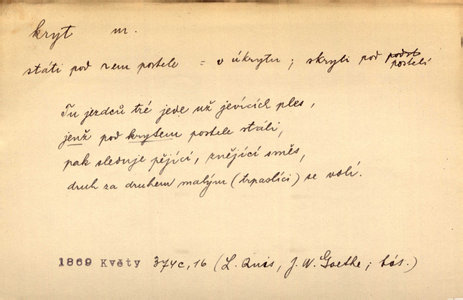 kryt m.
státi pod ním postele = v úkrytu; skrytí pod postelí
Tu jezdců tré jede už jevících ples,
jenž pod krytem postele stáli,
pak sleduje pějící, znějící směs,
druh za druhem malým (trpaslíci) se valí.
1869 Květy 374c, 16 (L. Quis, J. W. Goethe; bás.)